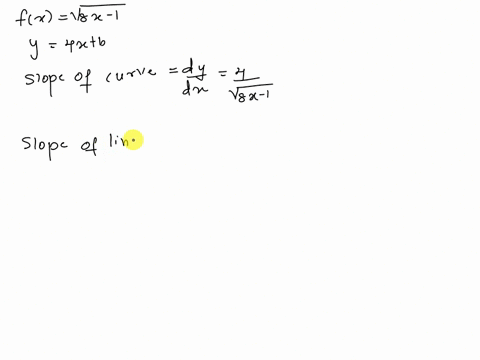 f(x) = √8x-1
y = 4x+b
Slope of curve = dy/dx = 4/√8x-1
Slope of lin